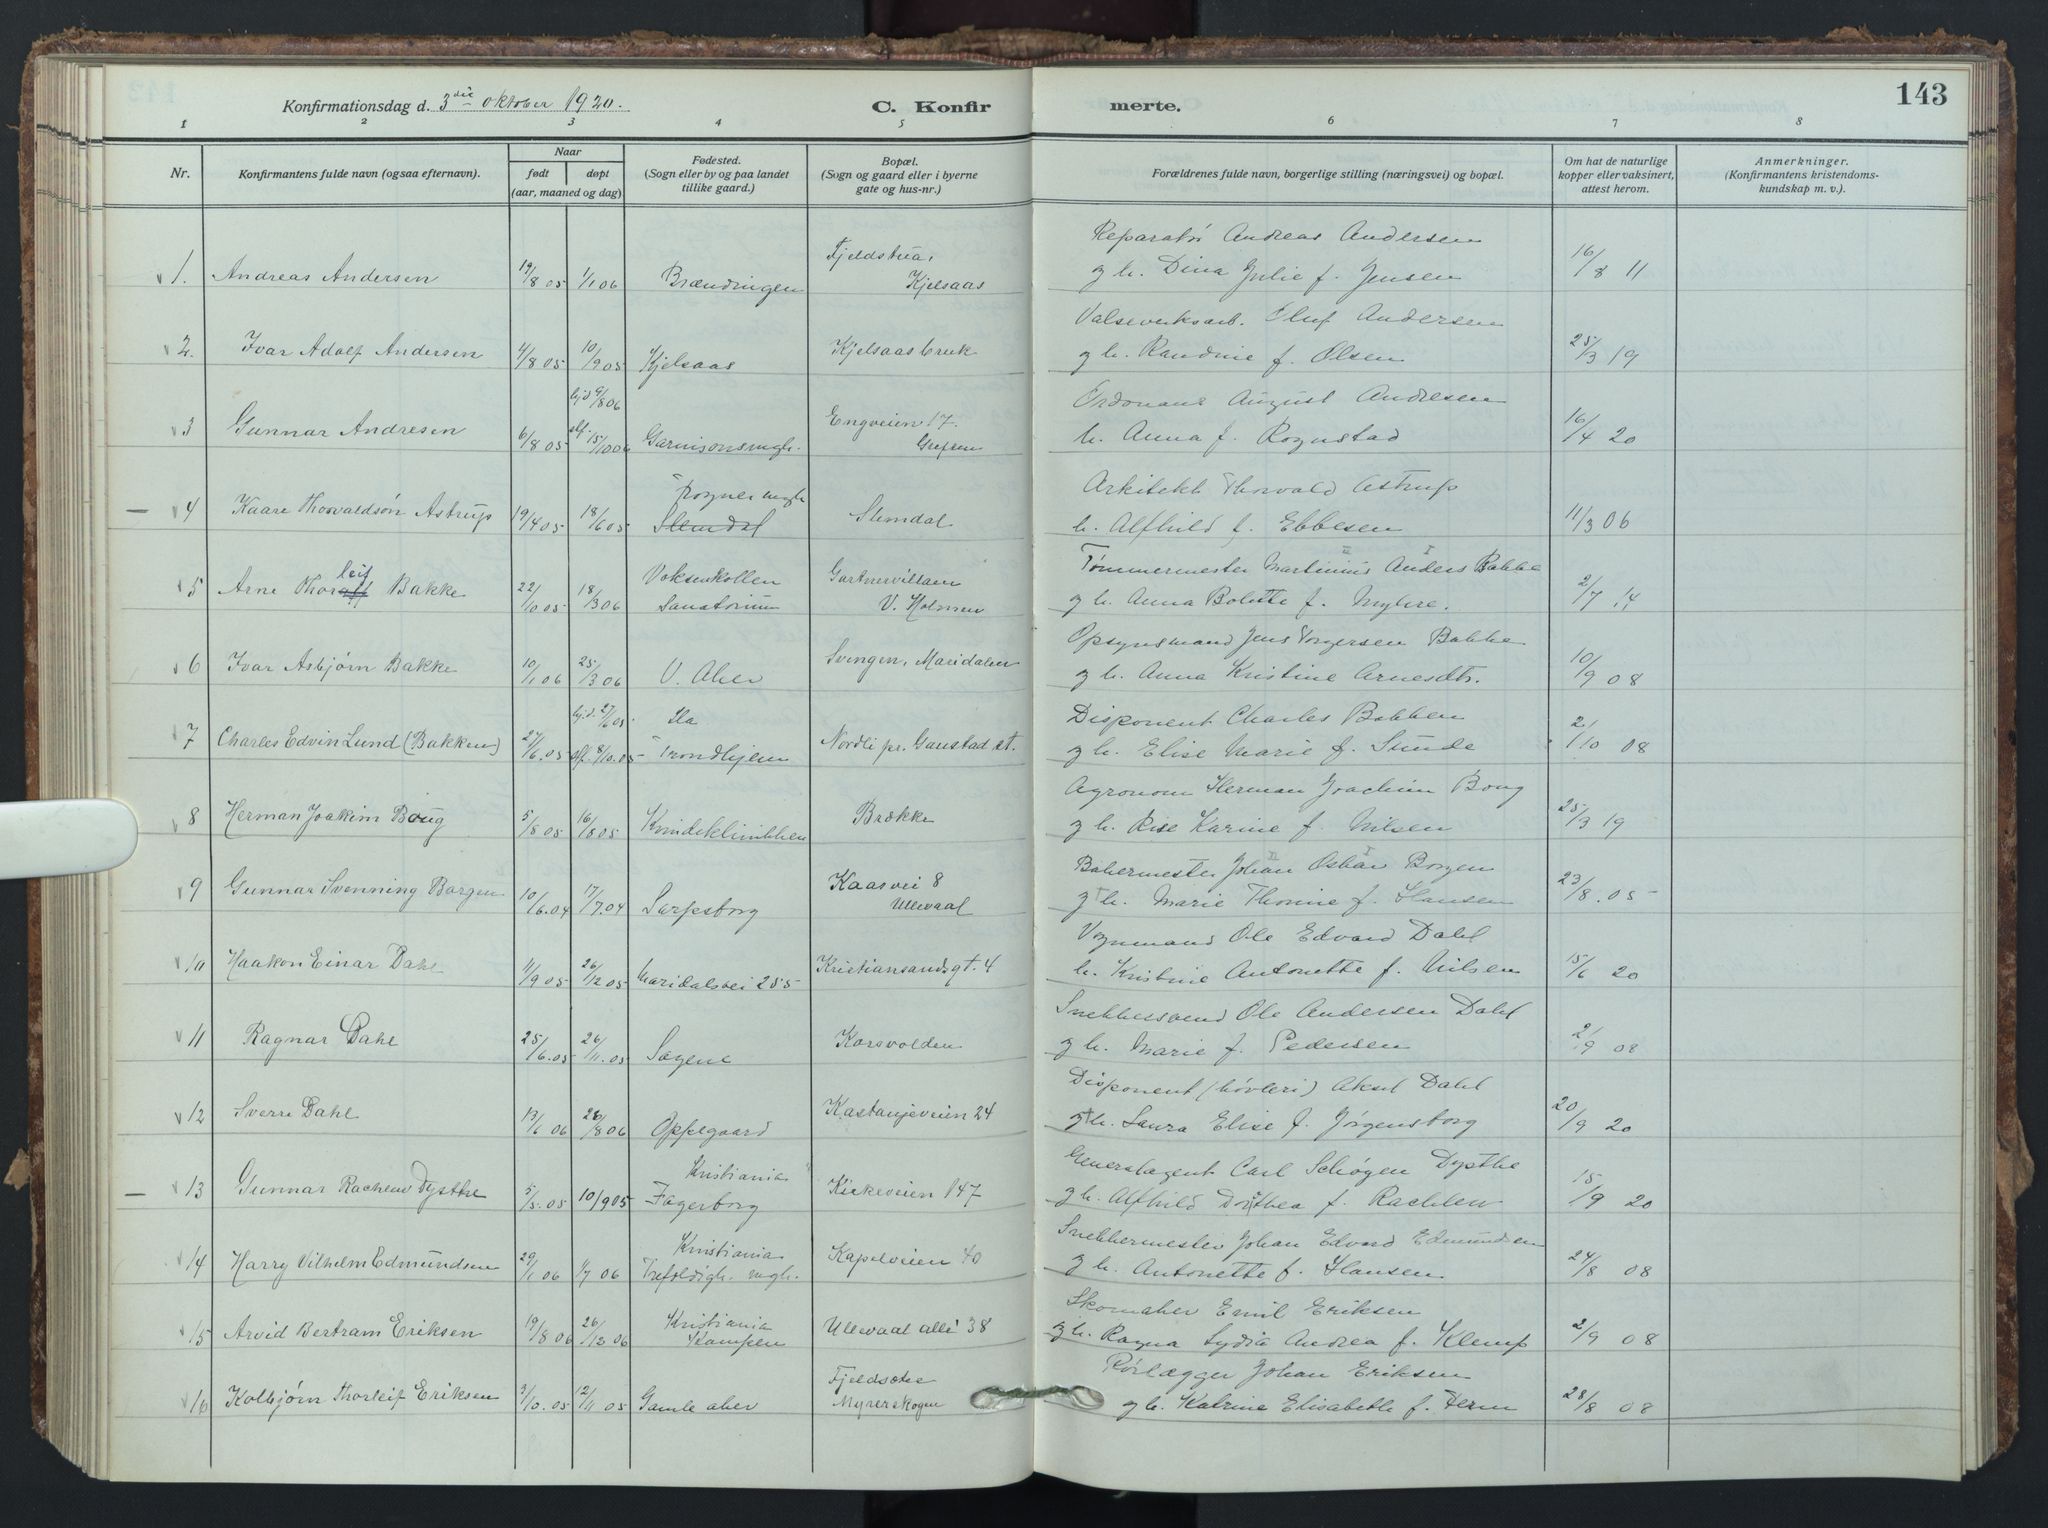 Konfirmationsdag d. 3die oktober 1920.
C. Konfirmerte.
143
1 2 3 4 5 6 7 8
Nr.
Konfirmantens fulde navn (ogsaa efternavn).
Naar
født døpt
(aar, maaned og dag)
Fødested.
(Sogn eller by og paa landet
tillike gaard.)
Bopæl.
(Sogn og gaard eller i byerne
gate og hus-nr.)
Forældrenes fulde navn, borgerlige stilling (næringsvei) og bopæl.
Om hat de naturlige
kopper eller vaksinert,
attest herom.
Anmerkninger.
(Konfirmantens kristendoms-
kundskap m. v.).
Fjeldstua, Reparatør Andreas Andersen
1. Andreas Andersen 19/8 05 1/1 06 Brændingen Kjelsaas g h. Dina Julie f. Jensen 16/8 11
Valseverksarb. Oluf Andersen
2. Ivar Adolf Andersen 4/8 05 10/9 05 Kjelsaas Kjelsaas bruk g h. Randine f. Olsen 25/3 19
hjd 9/8 06 Engveien 17. Ordonans August Andresen
3 Gunnar Andresen 6/8 05 slf. 15/10 06 Garnisonsmgh. Grefsen h. Anna f. Rognstad 16/4 20
Frogner mgh Arkitekt Thorvald Astrup
4 Kaare Thorvaldsøn Astrup 19/4 05 18/6 05 Slemdal Slemdal h. Alfhild f. Ebbesen 11/3 06
leif Voksenkollen Gartnervillaen Tømmermester Martinius II Anders I Bakke
5 Arne Thoralf Bakke 22/10 05 18/3 06 Sanatorium V. Holmen g h. Anna Bolette f. Myhre. 2/7 14
Svingen, Maridalen Opsynsmand Jens Torgersen Bakke
6 Ivar Asbjørn Bakke 10/1 06 25/3 06 V. Aker g h. Anna Kristine Arnesdtr. 10/9 08
hjd. 27/6 05 Ila Disponent Charles Bakken
7 Charles Edvin Lund (Bakken) 27/6. 05 slf. 8/10. 05 Trondhjem Nordli pr. Gaustad st. g h. Elise Marie f. Sunde 2/10 08
Agronom Herman Joachim Boug
8 Herman Joakim Boug 5/8 05 16/8 05 Kvindeklinikken Brække g h. Rise Karine f. Nilsen 25/3 19
Kaasvei 8 Bakermester Johan II Oskar I Borgen
9 Gunnar Svenning Borgen 10/6. 04 17/7. 04 Sarpsborg Ullevaal g † h. Marie Thonine f. Hansen 23/8. 05
Vognmand Ole Edvard Dahl
10 Haakon Einar Dahl 11/9 05 26/12 05 Maridalsvei 255 Kristiansandsgt. 4 h. Kristine Antonette f. Nilsen 15/6 20
Snekkersvend Ole Andersen Dahl
11 Ragnar Dahl 25/6. 05 26/11. 05 Sagene Korsvolden g h. Marie f. Pedersen 2/9 08
Disponent (høvleri) Aksel Dahl
12 Sverre Dahl 13/6 06 26/8 06 Oppegaard Kastanjeveien 24 g † h. Laura Elise f. Jørgensborg 20/9 20
Kristiania Generalagent Carl Schøgen Dysthe
13 Gunnar Rachlew Dysthe 5/5. 05 10/9 05 Fagerborg Kirkeveien 147 g h. Alfhild Dorothea f. Rachlew 15/9 20
Kristiania Snekkermester Johan Edvard Edmundsen
14 Harry Vilhelm Edmundsen 29/1 06 1/7 06 Trefoldigh. mgh. Kapelveien 40 g h. Antonette f. Hansen 24/8 08
Kristiania Skomaker Emil Eriksen
15 Arvid Bertram Eriksen 19/8 06 26/12 06 Kampen Ullevaal allé 38 g h. Ragna Lydia Andrea f. Klemp 2/9 08
Rørlægger Johan Eriksen
16 Kolbjørn Thorleif Eriksen 3/10. 05 12/11 05 Gamle aker Myrerskogen g h. Katrine Elisabeth f. 28/8 08